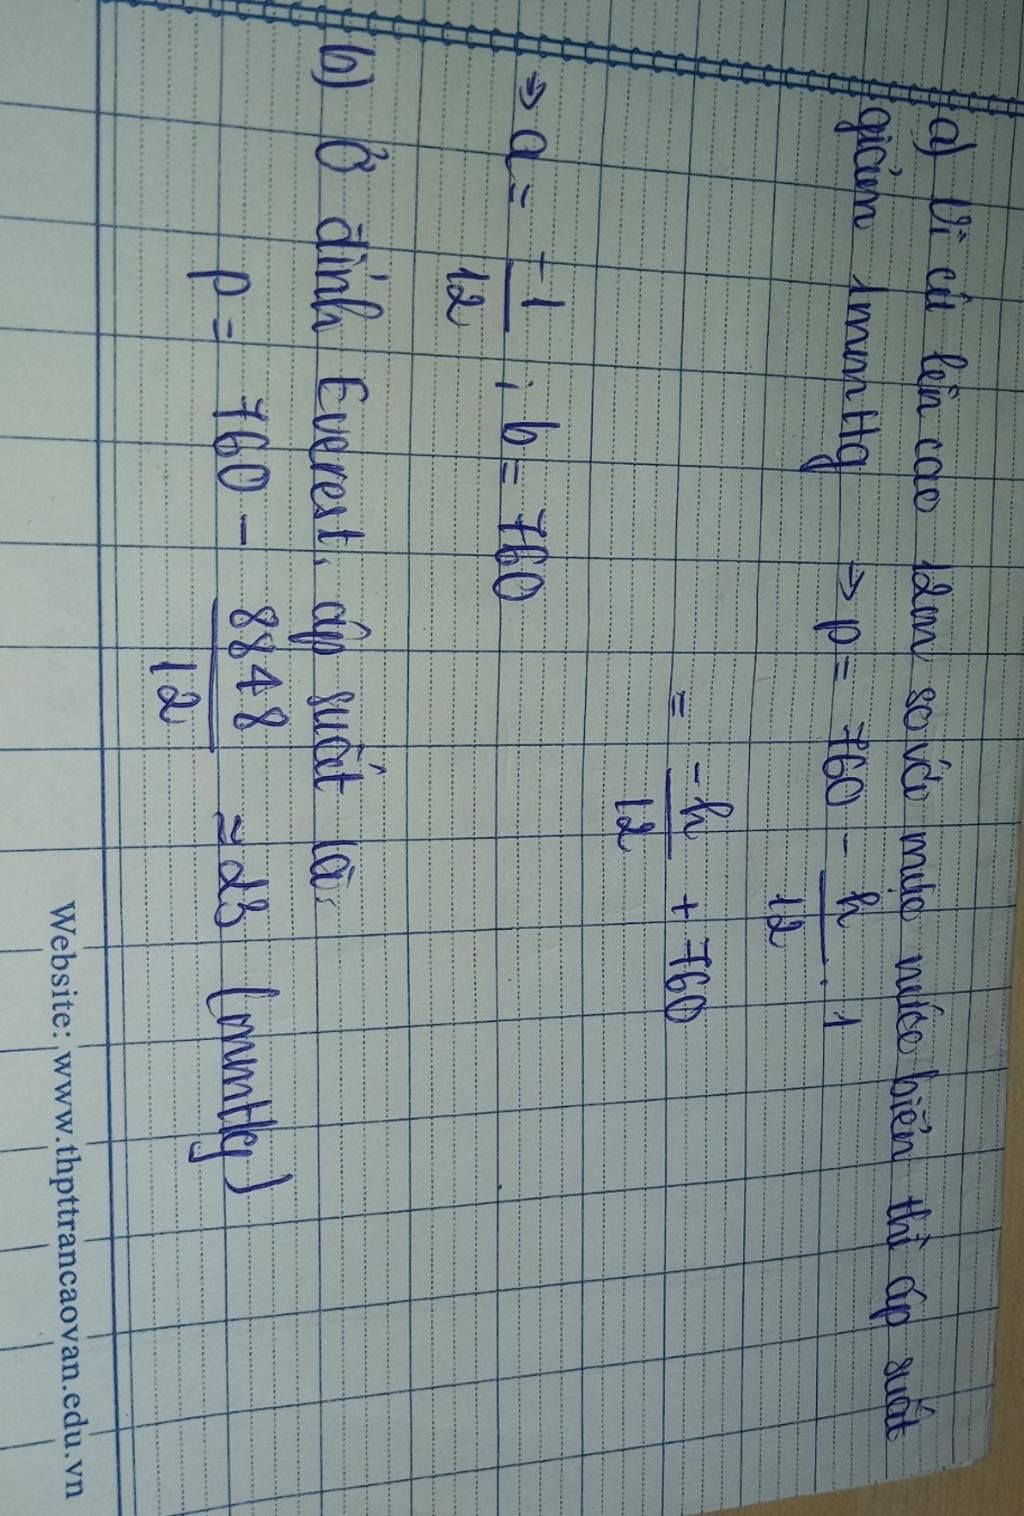 a) Vì cứ lên cao 12m so với mực nước biển thì áp suất
giảm 1mmHg → p = 760 - h/12 . 1
= -h/12 + 760
→ a = -1/12 ; b = 760
b) Ở đỉnh Everest, áp suất là:
p = 760 - 8848/12 ≈ 23 (mmHg)
Website: www.thpttrancaovan.edu.vn